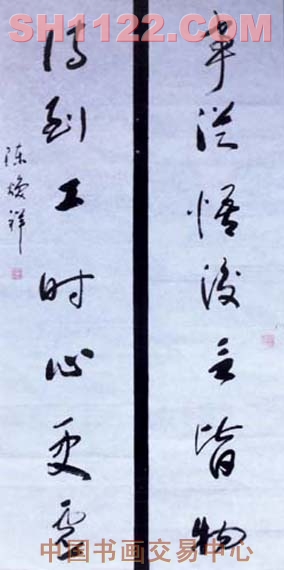 SH1122.COM
事從悟後言皆物
诗到工时心更虚
陈焕祥
中国书画交易中心